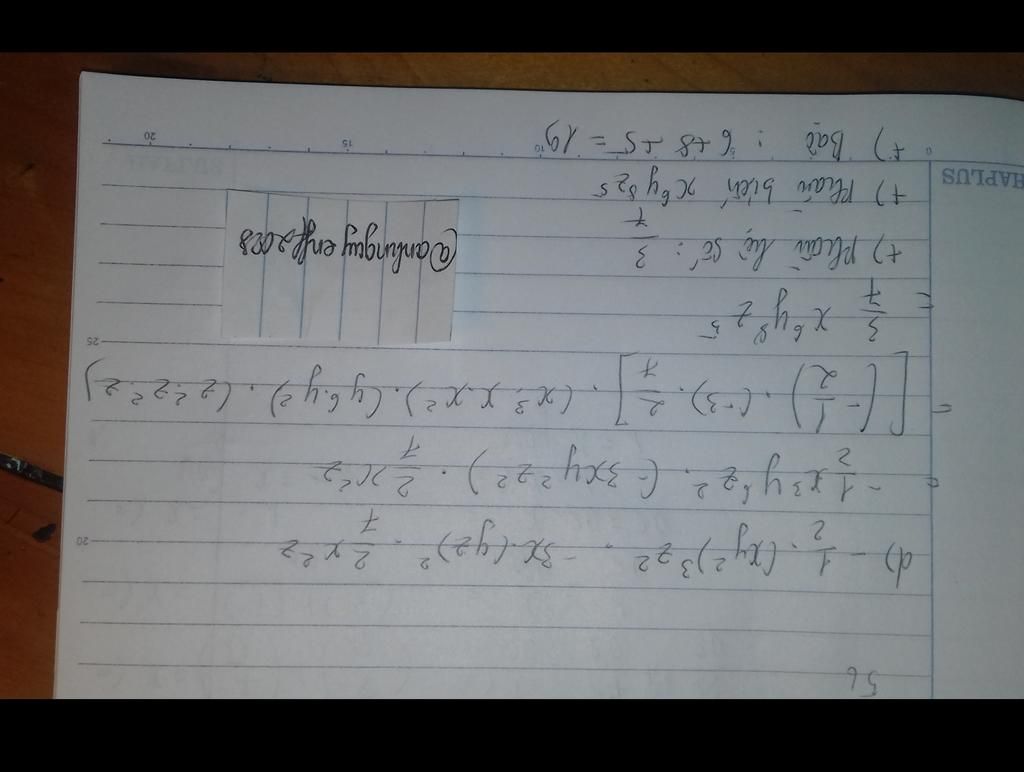 56
d) - 1/2 . (xy²)³z² . - 3x.(yz)² . 2/7 x²z
= - 1/2 x³y⁶z² . (-3xy²z²) . 2/7 x²z
= [(-1/2) . (-3) . 2/7] . (x³.x.x²) . (y⁶.y²) . (z².z².z)
= 3/7 x⁶y⁸z⁵
+) Phần hệ số: 3/7
+) Phần biến x⁶y⁸z⁵
+) Bậc : 6+8+5 = 19
@anhnguyenff2028
HAPLUS
20
25
0
10
15
20